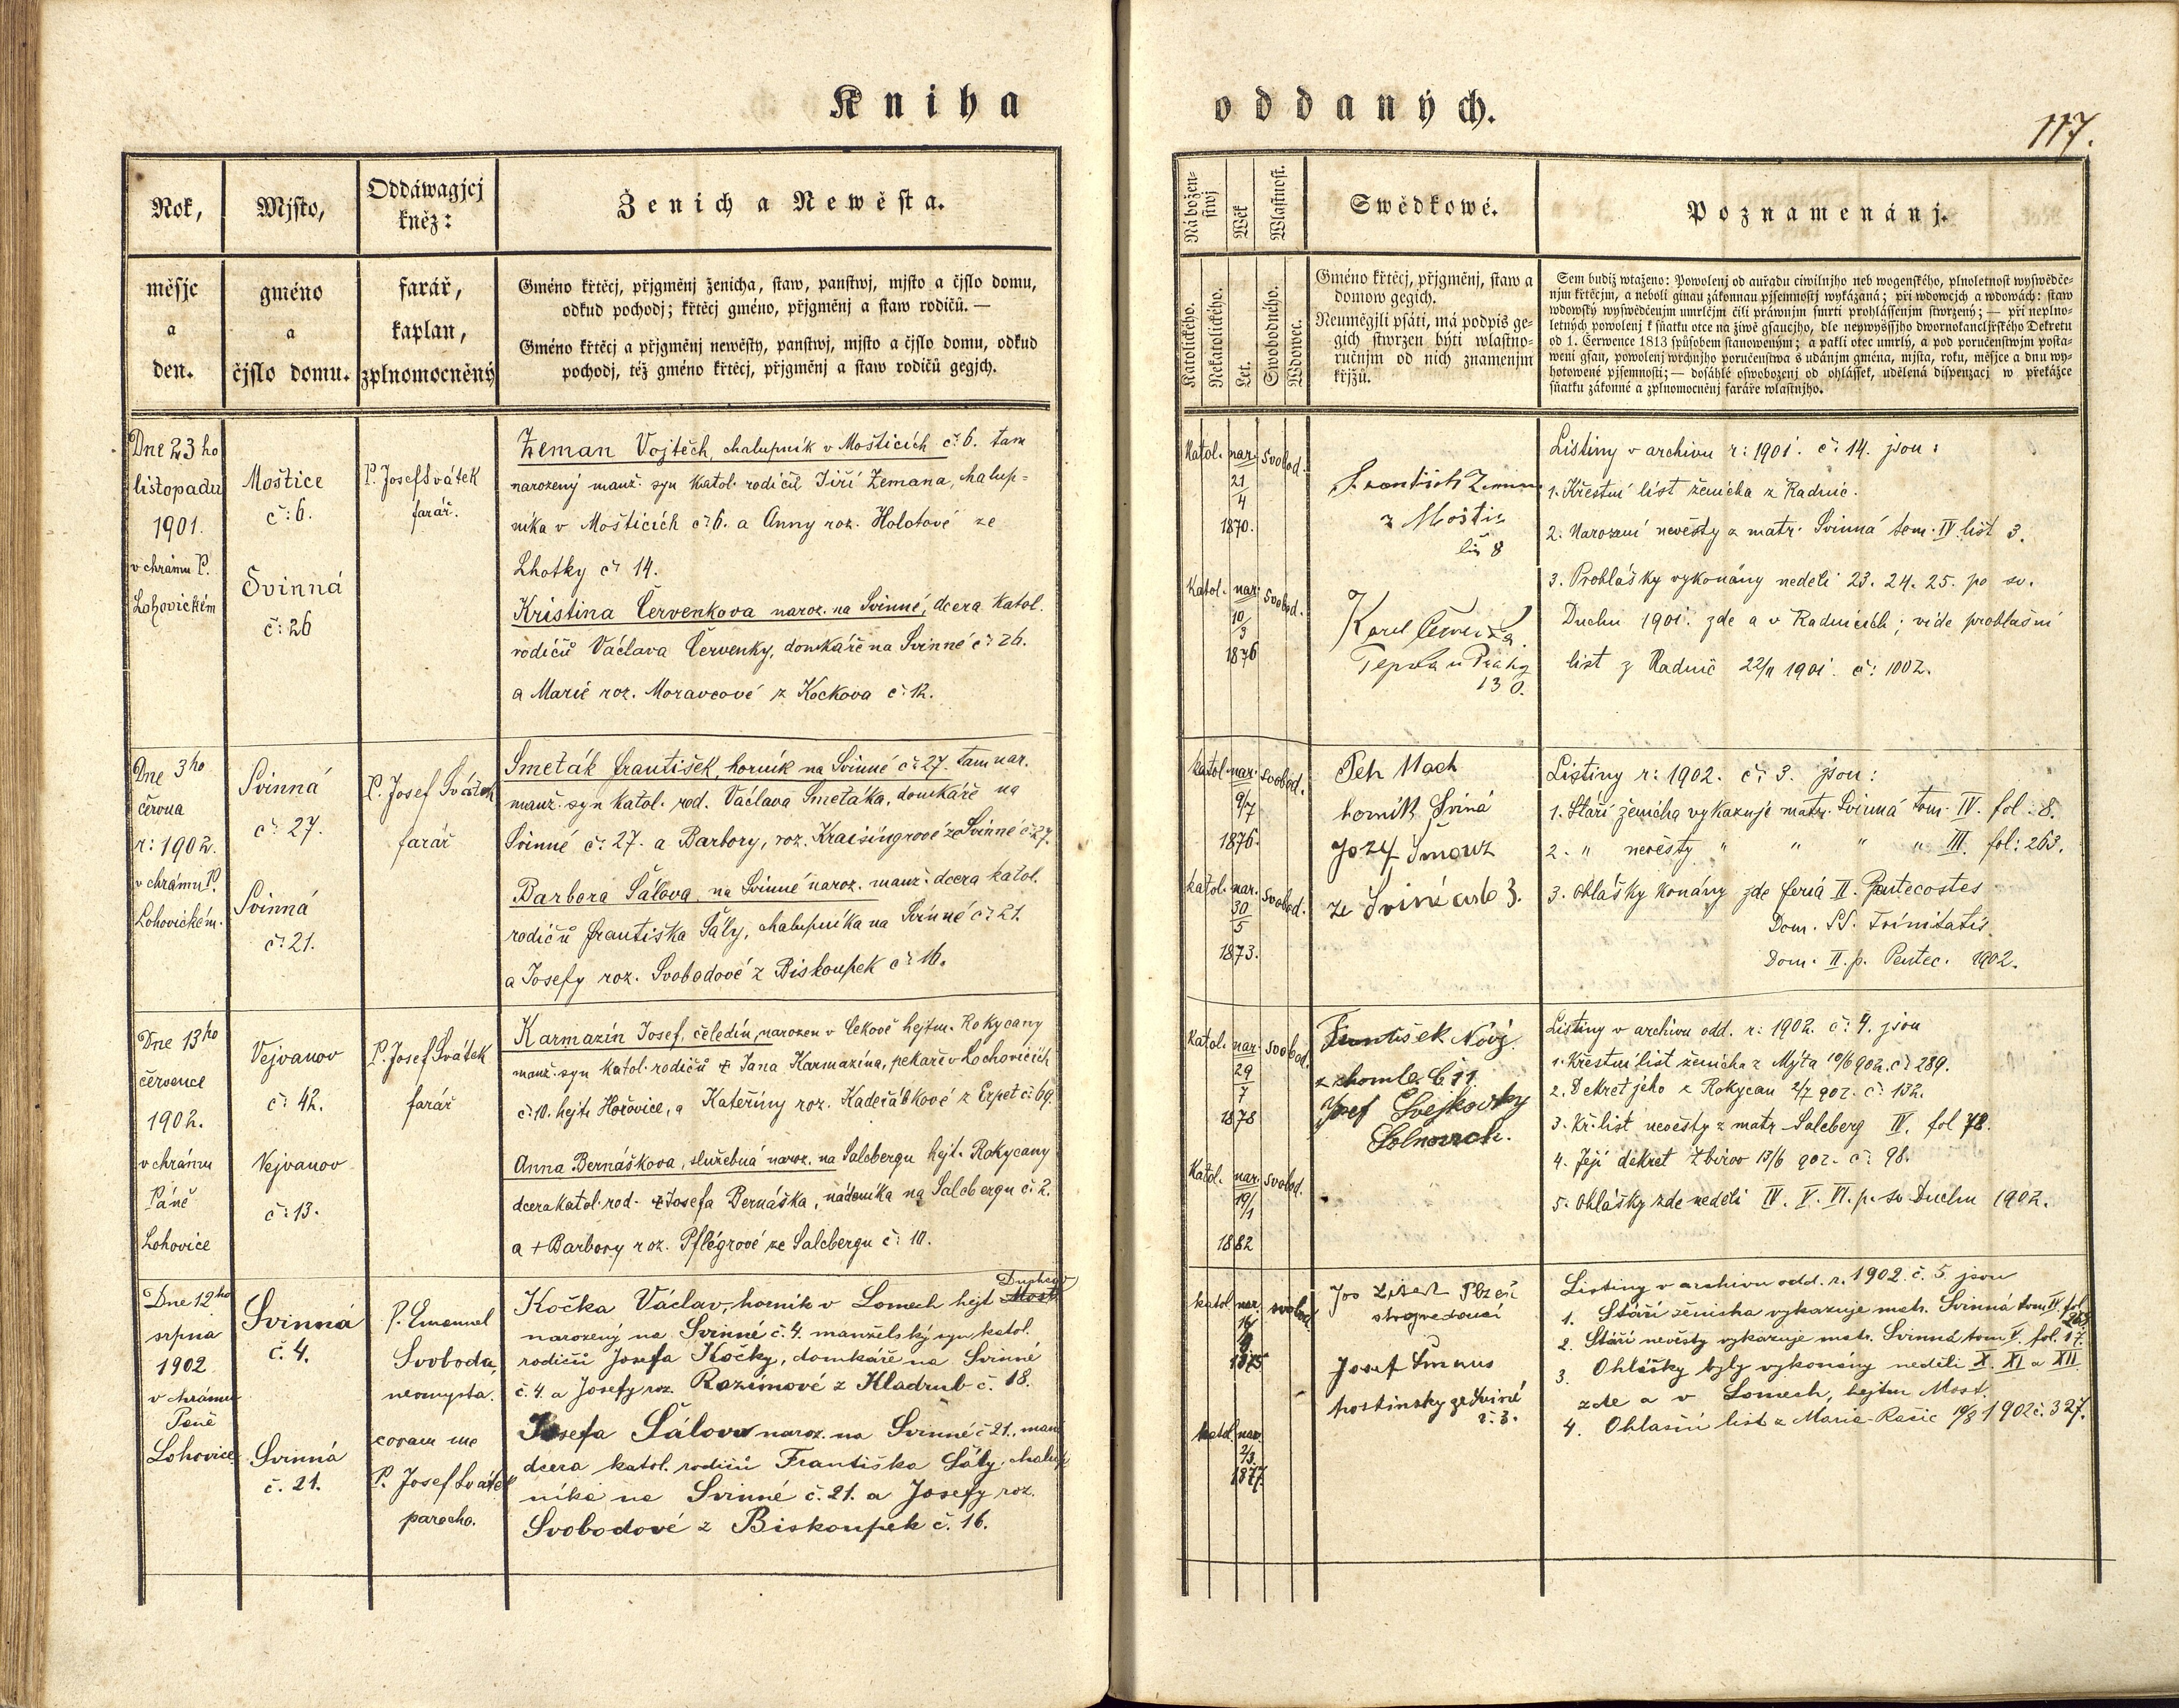 Kniha
oddaných.
117.
Rok,
Mjsto,
Oddáwagjcj
kněz:
Ženich a Newěsta.
měsjc
a
den.
gméno
a
čjslo domu.
farář,
kaplan,
zplnomocněný
Gméno křtěcj, přjgměnj ženicha, staw, panstwj, mjsto a čjslo domu,
odkud pochodj; křtěcj gméno, přjgměnj a staw rodičů. —
Gméno křtěcj a přjgměnj newěsty, panstwj, mjsto a čjslo domu, odkud
pochodj, též gméno křtěcj, přjgměnj a staw rodičů gegjch.
Dne 23 ho
listopadu
1901.
v chrámu P.
Lohovickém
Moštice
č: 6.
Svinná
č: 26
P. Josef Svátek
farář.
Zeman Vojtěch, chalupník v Mošticích č: 6. tam
narozený manž. syn katol. rodičů Jiří Zemana, chalup=
níka v Mošticích č: 6. a Anny roz. Holotové ze
Lhotky č: 14.
Kristina Červenkova naroz. na Svinné, dcera katol.
rodičů Václava Červenky, domkáře na Svinné č: 26.
a Marie roz. Moravcové z Kockova č: 12.
Dne 3ho
června
r: 1902.
v chrámu P.
Lohovickém.
Svinná
č: 27.
Svinná
č: 21.
P. Josef Svátek
farář
Smeták František, horník na Svinné č: 27. tam nar.
manž. syn katol. rod. Václava Smetáka, domkáře na
Svinné č: 27. a Barbory, roz. Kraisingrové ze Svinné č: 27.
Barbora Šálova, na Svinné naroz. manž. dcera katol.
rodičů Františka Šály, chalupníka na Svinné č: 21.
a Josefy roz. Svobodové z Biskoupek č: 16.
Dne 13ho
července
1902.
v chrámu
Páně
Lohovice
Vejvanov
č: 42.
Vejvanov
č: 13.
P. Josef Svátek
farář
Karmazín Josef, čeledín, narozen v Cekově hejtm. Rokycany
manž. syn katol. rodičů + Jana Karmazína, pekaře v Lochovicích
č: 10. hejt. Hořovice, a Kateřiny roz. Kadeřábkové z Erpet č: 69.
Anna Bernášková, služebná naroz. na Salcbergu hejt. Rokycany
dcera katol. rod. + Josefa Bernáška, nádeníka na Salcbergu č: 2.
a + Barbory roz. Pflégrové ze Salcbergu č: 10.
Dne 12ho
srpna
1902
v chrámu
Páně
Lohovice
Svinná
č. 4.
Svinná
č. 21.
P. Emanuel
Svoboda,
neomysta.
coram me
P. Josef Svátek
parocho.
Kočka Václav, horník v Lomech hejt Most Duchcov
narozený na Svinné č. 4. manželský syn katol.
rodičů Josefa Kočky, domkáře na Svinné
č. 4. a Josefy roz. Rozímové z Kladrub č. 18.
Josefa Šálova naroz. na Svinné č 21., manž
dcera katol. rodičů Františka Šály, chalup
níka na Svinné č. 21. a Josefy roz.
Svobodové z Biskoupek č. 16.
Nábožen-
stwj
Wěk
Wlastnost.
Swědkowé.
Poznamenánj.
Katolického.
Nekatolického.
Let.
Swobodného.
Wdowec.
Gméno křtěcj, přjgměnj, staw a
domow gegich.
Neuměgjli psáti, má podpis ge-
gich stwrzen býti wlastno-
ručnjm od nich znamenjm
křjžů.
Sem budiž wtaženo: Powolenj od auřadu ciwilnjho neb wogenského, plnoletnost wyswědče-
njm křtěcjm, a neboli ginau zákonnau pjsemnostj wykázaná; při wdowcjch a wdowách: staw
wdowský wyswědčenjm umrlčjm čili práwnjm smrti prohlášenjm stwrzený; — při neplno-
letných powolenj k sňatku otce na žiwě gsaucjho, dle neywyššjho dwornokancljřského Dekretu
od 1. Čerwence 1813 spůsobem stanoweným; a pakli otec umrlý, a pod poručenstwjm posta-
weni gsau, powolenj wrchnjho poručenstwa s udánjm gména, mjsta, roku, měsjce a dnu wy-
hotowené pjsemnosti; — dosáhlé oswobozenj od ohlášek, udělená dispenzacj w překážce
sňatku zákonné a zplnomocněnj faráře wlastnjho.
Katol. nar. svobod.
21
4
1870.
Katol. nar. svobod.
10
3
1876
František Zeman
z Moštic
čís 8
Karel Červenka
Tepla u Prahy
130.
Listiny v archivu r: 1901. č: 14. jsou:
1. Křestní list ženicha z Radnic.
2. Narození nevěsty z matr. Svinná tom. IV list 3.
3. Prohlášky vykonány neděli 23. 24. 25. po sv.
Duchu 1901. zde a v Radnicích; vide prohlašní
list z Radnic 22/11 1901. č: 1002.
katol. nar. svobod.
9/7
1876.
katol. nar. svobod.
30
5
1873.
Petr Mach
horník Sviná
Jozef Šmauz
ze Sviné číslo 3.
Listiny r: 1902. č: 3. jsou:
1. Stáří ženicha vykazuje matr. Svinná tom. IV. fol: 8.
2. " nevěsty " " " " III. fol: 263.
3. Ohlášky konány zde feria II. Pentecostes
Dom. SS. Trinitatis
Dom. II. p. Pentec. 1902.
katol. nar. svobod.
29
7
1878
Katol. nar. svobod.
19/1
1882
František Nový
z chomle. č 11
Josef Svejkovsky
Listiny v archivu odd. r: 1902. č: 4. jsou
1. Křestní list ženicha z Mýta 10/6 902. č: 289.
2. Dekret jeho z Rokycan 2/7 902. č: 132.
3. Kř. list nevěsty z matr Salcberg IV. fol 78.
4. Její dekret Zbirov 13/6 902. č: 98.
5. Ohlášky zde neděli IV. V. VI. p. sv. Duchu 1902.
katol. nar. svobod.
16/
9
1875
katol. nar.
2/3.
1877.
Josef Šmaus
hostinsky ze Sviné
č. 3.
Listiny v archivu odd. r. 1902. č. 5. jsou
1. Stáří ženicha vykazuje matr. Svinná tom IV. fol
2. Stáří nevěsty vykazuje matr. Svinná tom V. fol. 17.
3. Ohlášky byly vykonány neděli X. XI a XII
zde a v Lomech, hejtm Most.
4. Ohlašní list z Maria-Rašic 10/8 1902 č. 327.